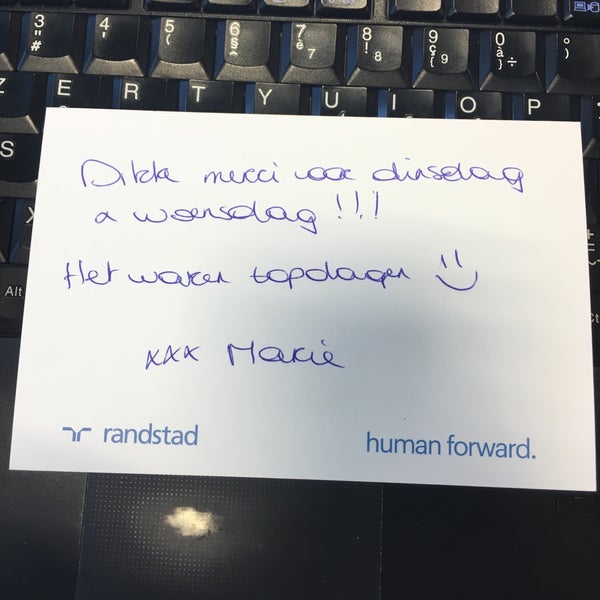 3 " #
4 '
5 (
6 § ^
7 è 7
8 ! 8
9 ç { 9
0 à } ÷
° )
Z E R T Y U I O P
S
X
Alt
Dikke merci voor dinsdag
& woensdag !!!
Het waren topdagen :)
xxx Marie
randstad
human forward.